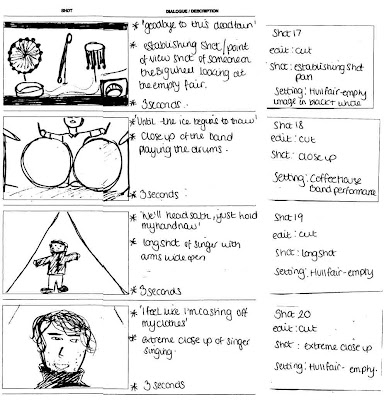 SHOT
DIALOGUE / DESCRIPTION
* 'goodbye to this dead town'
* establishing shot/point
of view shot of someone on
the big wheel looking at
the empty fair.
* 3 seconds.
Shot 17
edit: cut
Shot: establishing shot
pan
Setting: Hull fair-empty
image in black + white
* 'Until the ice begins to thaw'
* close up of the band
playing the drums.
* 3 seconds
Shot 18
edit: cut
Shot: close up
Setting: Coffeehouse
band performance
* 'We'll head south, just hold
my hand now'
* long shot of singer with
arms wide open
* 3 seconds
Shot 19
edit: cut
Shot: long shot
Setting: Hull fair - empty
* 'I feel like I'm cashing off
my clothes'
* extreme close up of singer
singing.
* 3 seconds
Shot 20
edit: cut
Shot: extreme close up
Setting: Hull fair - empty.